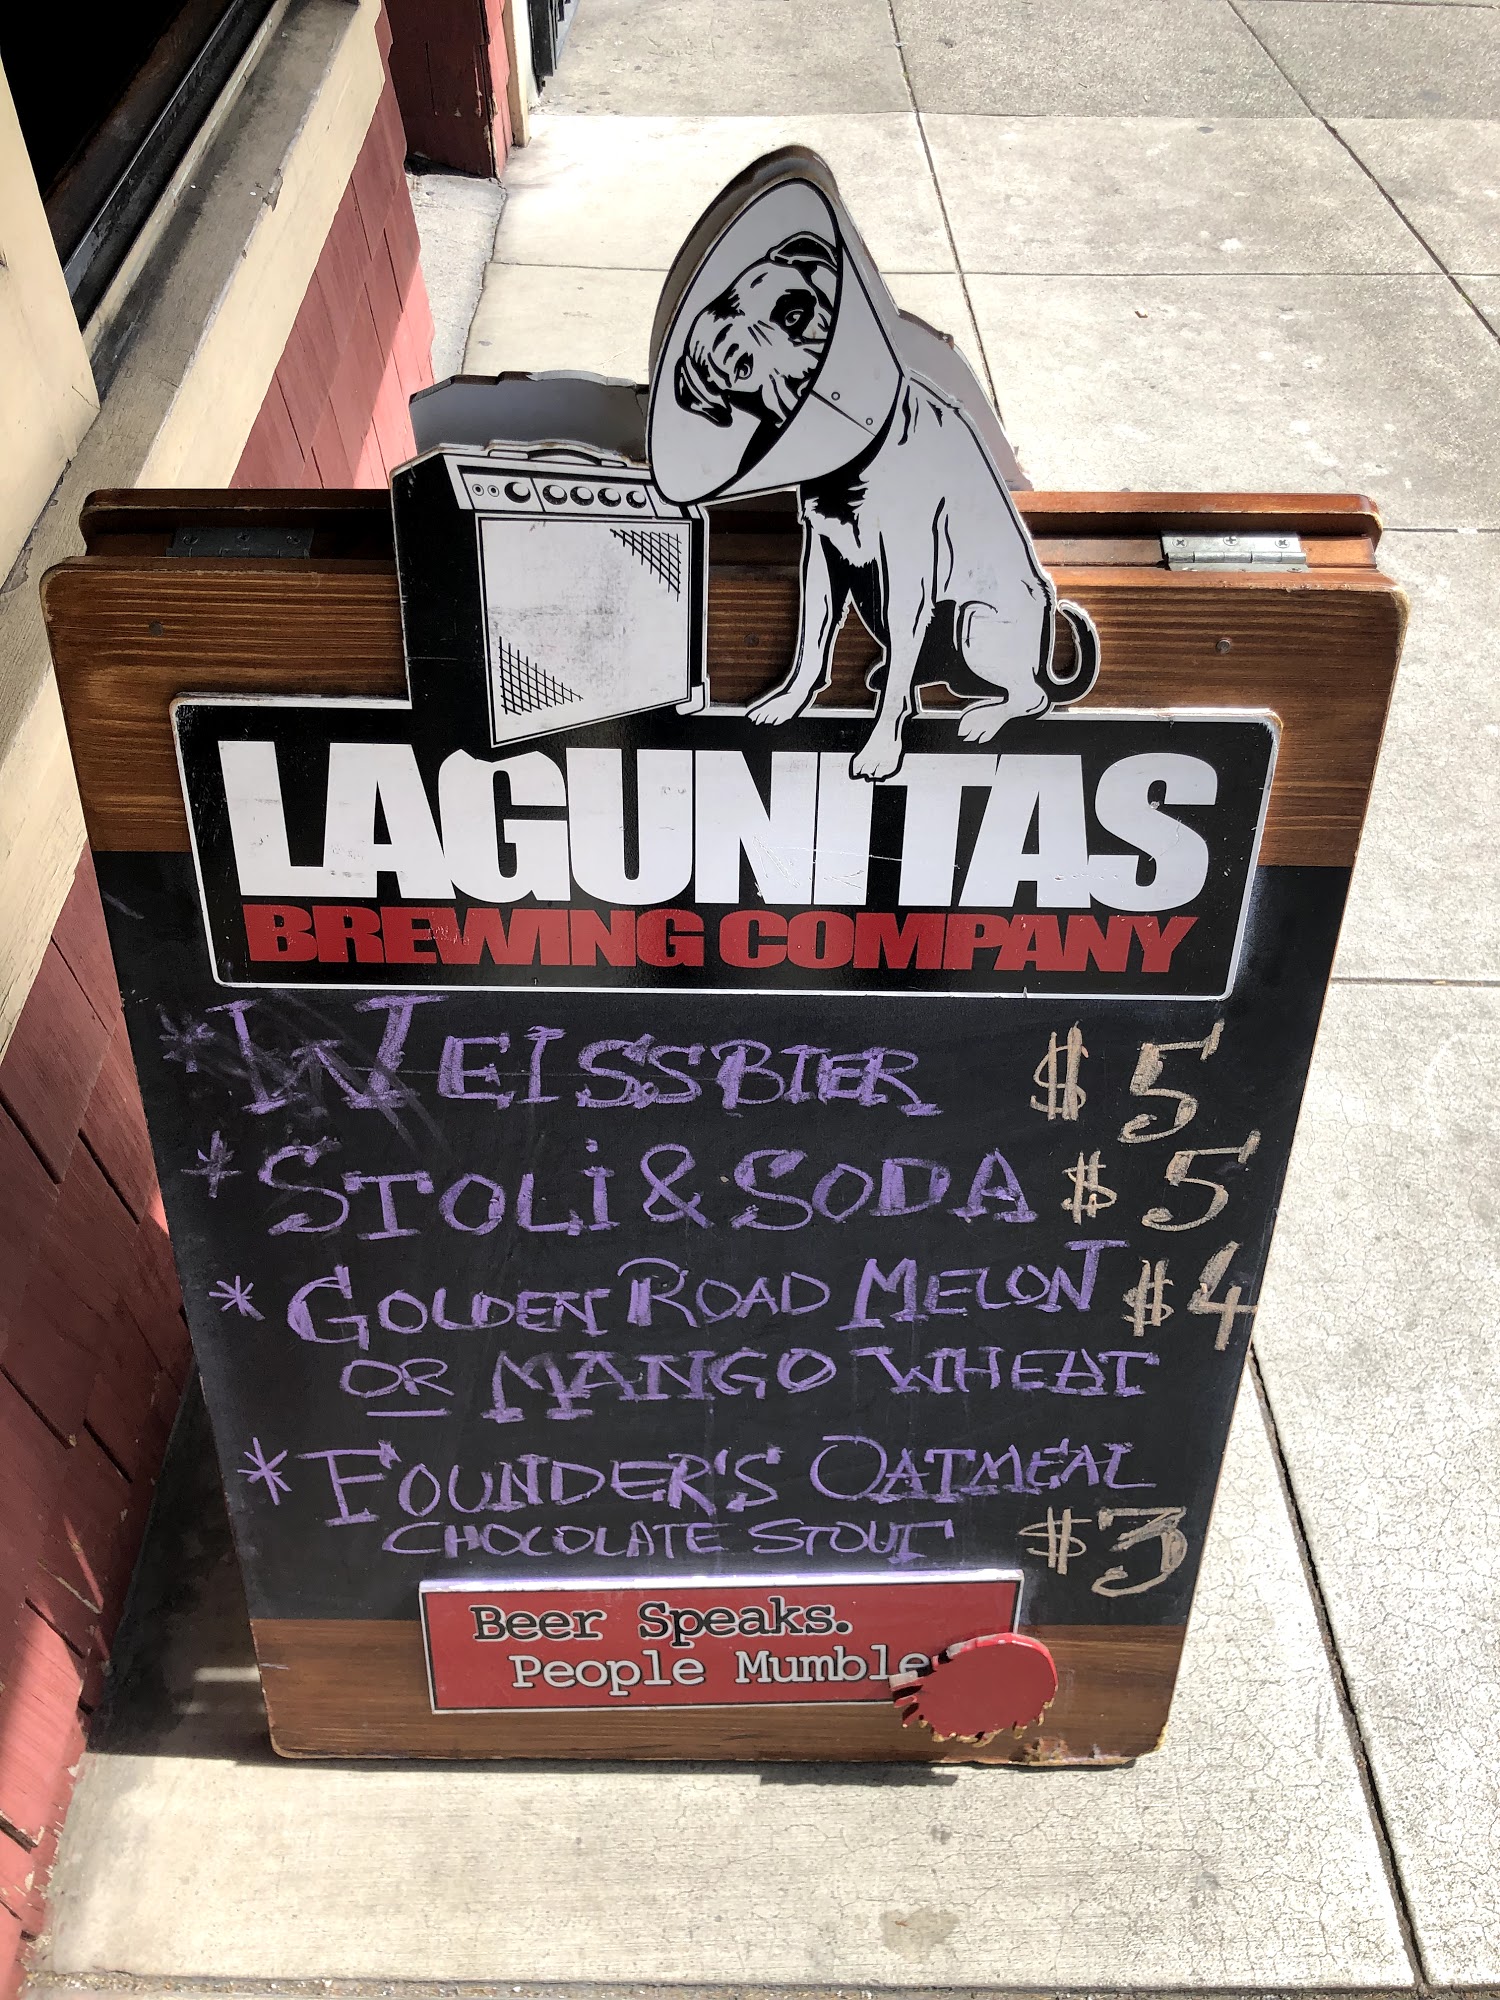 LAGUNITAS
BREWING COMPANY
* WEISSBIER $5
* STOLi & SODA $5
* GOLDEN ROAD MELON $4
OR MANGO WHEAT
* FOUNDER'S OATMEAL
CHOCOLATE STOUT $3
Beer Speaks.
People Mumble